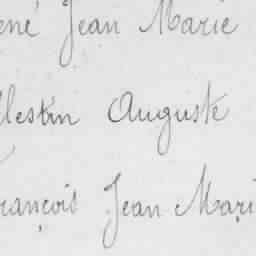 ené Jean Marie
lestin Auguste
rançois Jean Mari